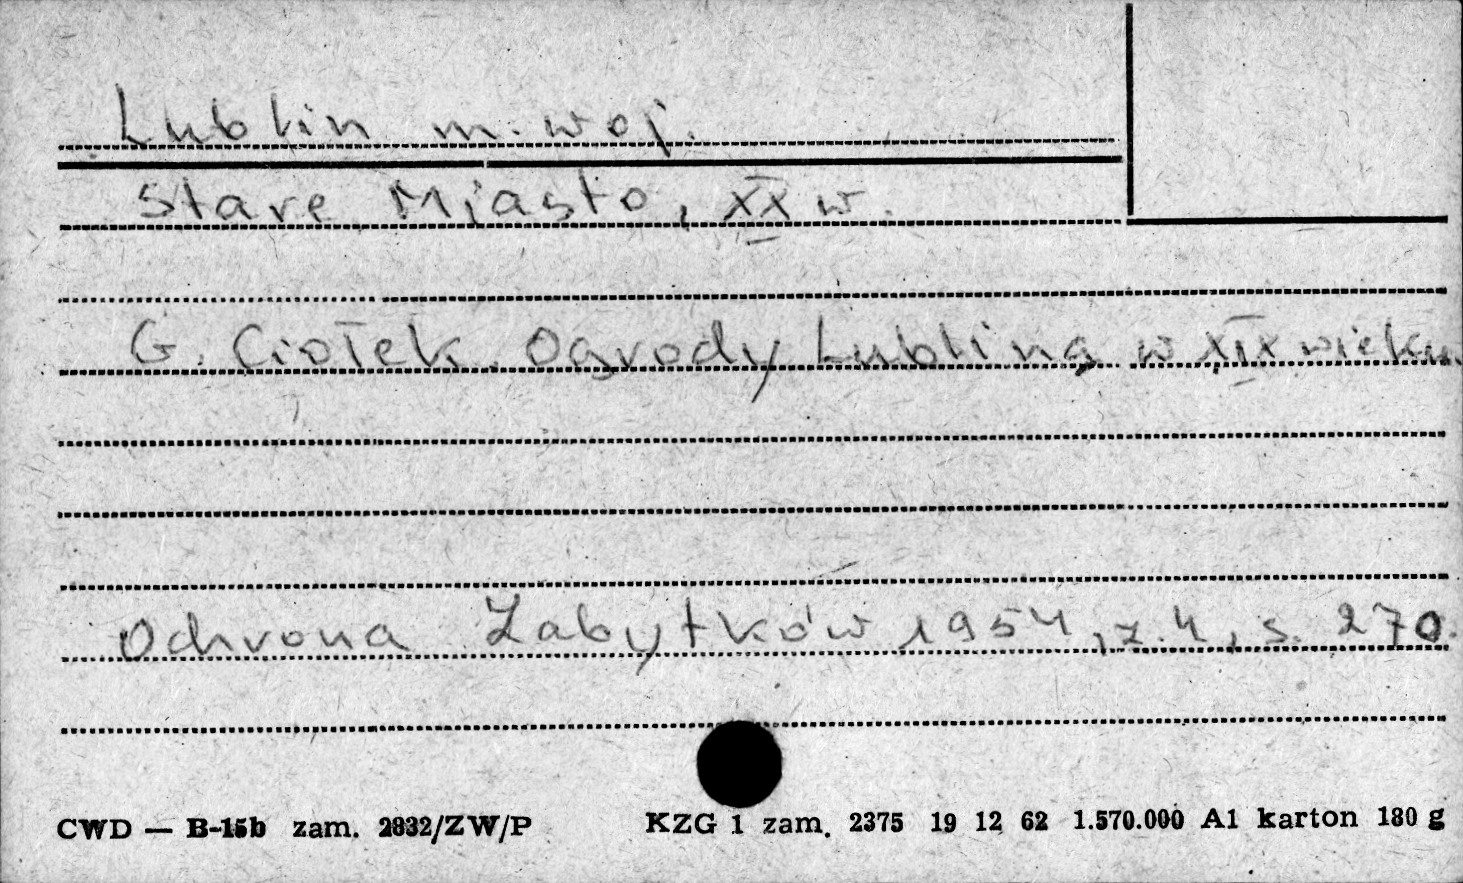 Lublin m. woj.
Stare Miasto, XX w.
G. Ciołek. Ogrody Lublina w XIX wieku.
Ochrona Zabytków 1954, z. 4, s. 270.
CWD — B-15b zam. 2832/ZW/P KZG 1 zam. 2375 19 12 62 1.570.000 A1 karton 180 g